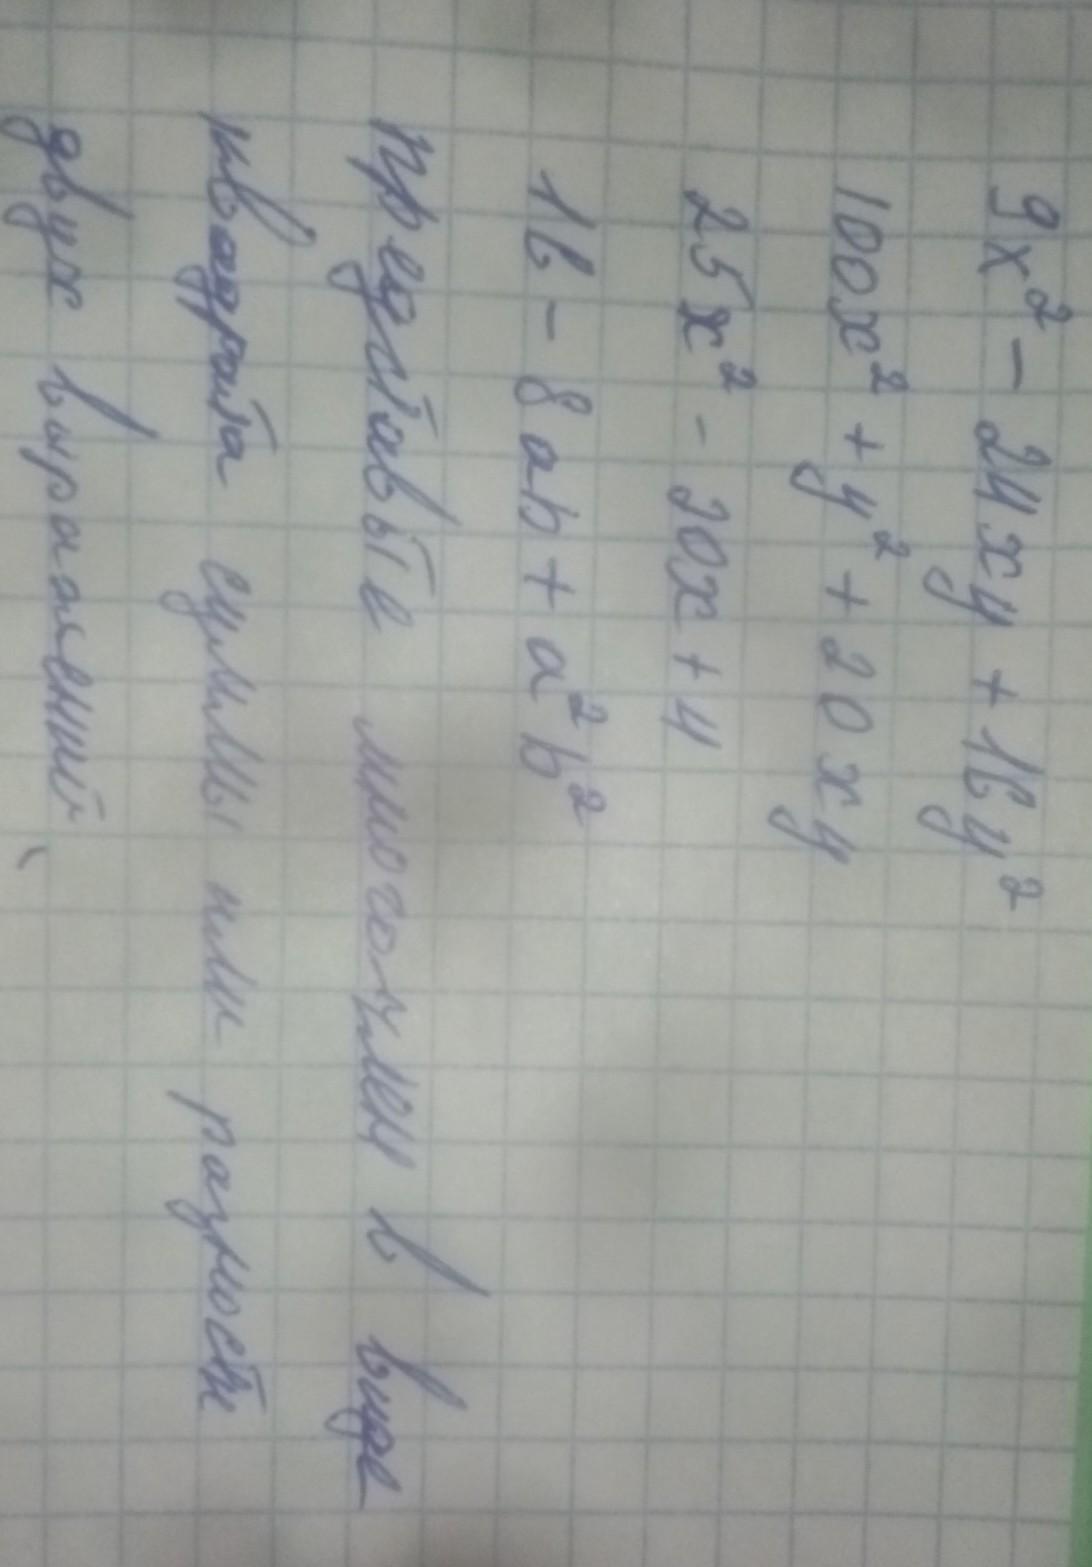 9x² - 24xy + 16y²
100x² + y² + 20xy
25x² - 20x + 4
16 - 8ab + a²b²
Представьте многочлен в виде
квадрата суммы или разности
двух выражений